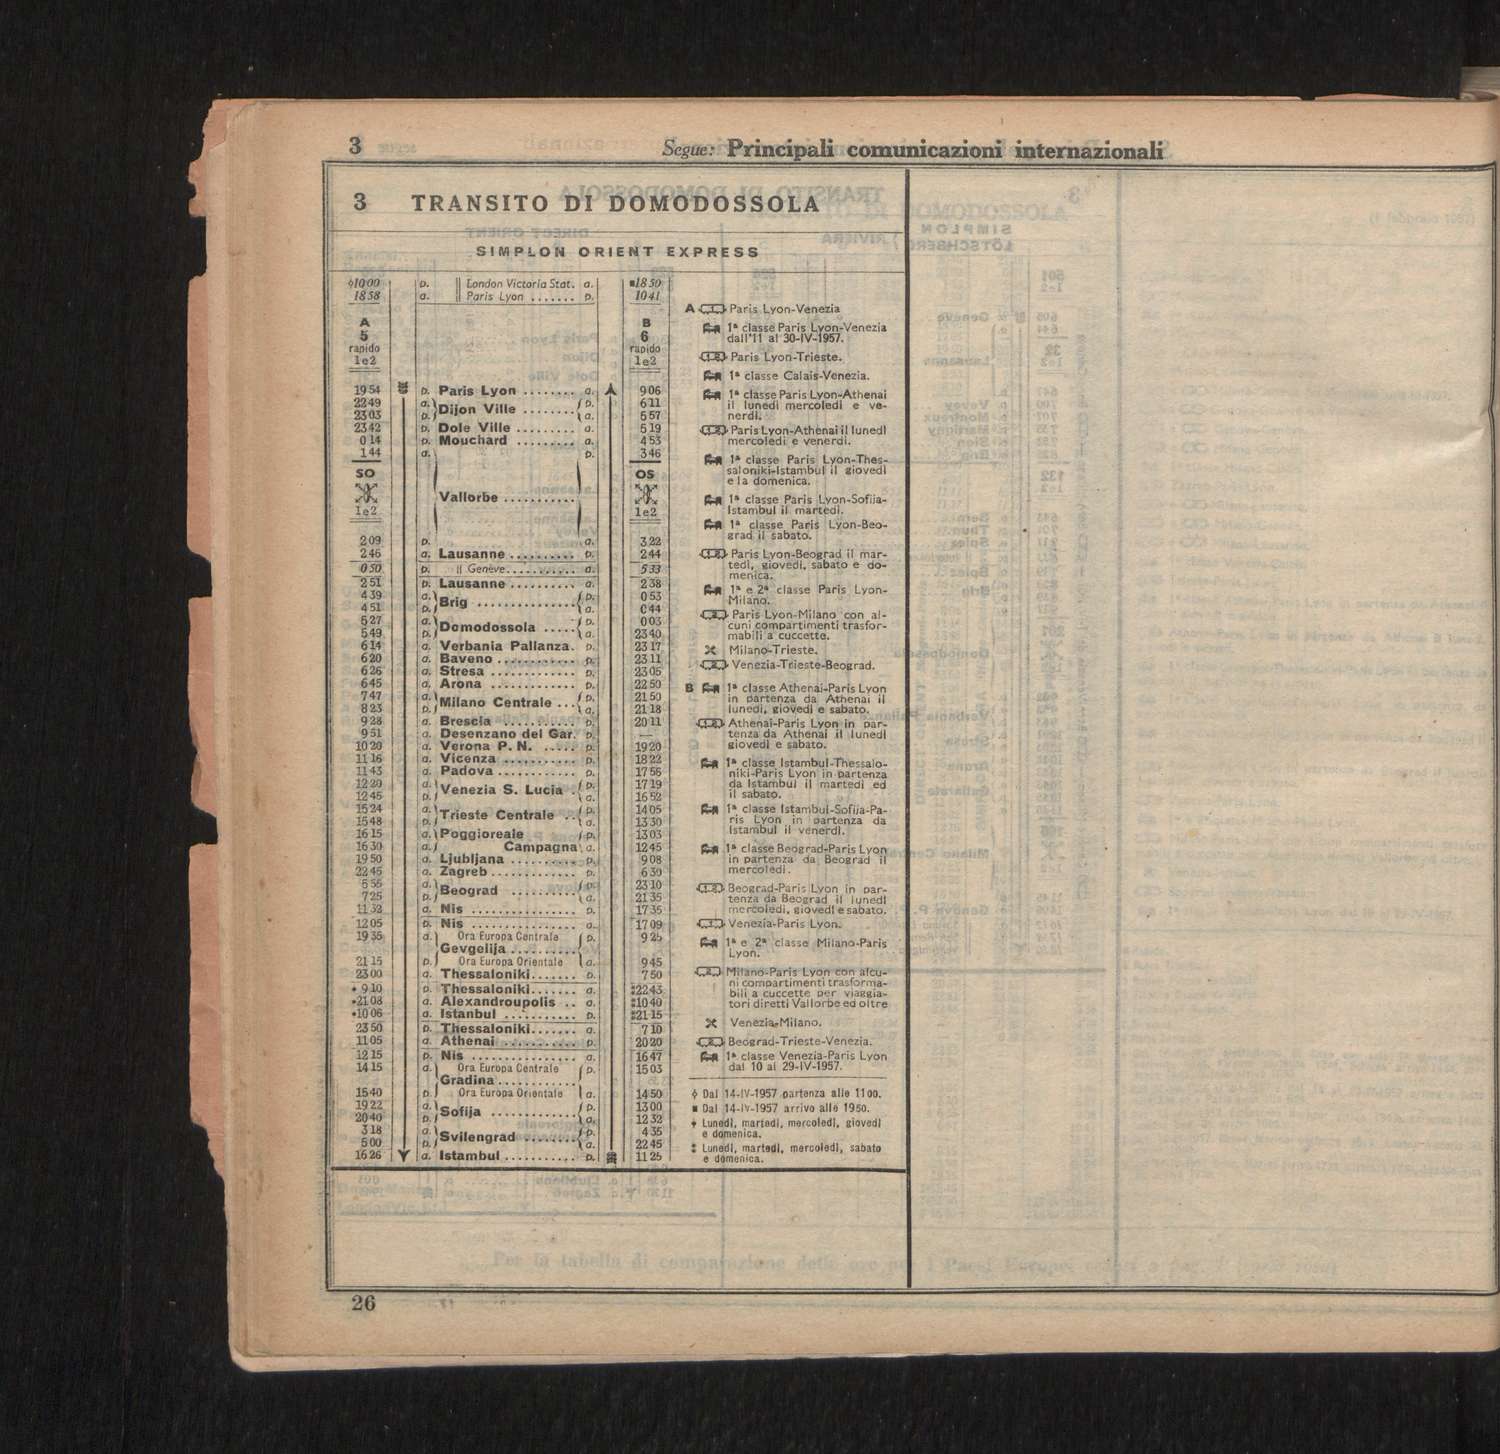 3 Segue: Principali comunicazioni internazionali
3 TRANSITO DI DOMODOSSOLA
SIMPLON ORIENT EXPRESS
◊1000 p. London Victoria Stat. a. ▪1850
1858 a. Paris Lyon ....... p. 1041
A B
5 6
rapido rapido
1e2 1e2
1954 p. Paris Lyon ........ a. 906
2249 a. Dijon Ville ........ p. 611
2303 p. a. 557
2342 p. Dole Ville ......... a. 519
014 p. Mouchard ......... a. 453
144 a. p. 346
SO OS
Vallorbe ...........
1e2 1e2
209 p. a. 322
246 a. Lausanne .......... p. 244
050 p. Genève........... a. 533
251 p. Lausanne .......... a. 238
439 a. Brig ............... p. 053
451 p. a. 044
527 a. Domodossola ..... p. 003
549 p. a. 2340
614 a. Verbania Pallanza. p. 2317
620 a. Baveno ............ p. 2311
626 a. Stresa ............ p. 2305
645 a. Arona ............ p. 2250
747 a. Milano Centrale ... p. 2150
823 p. a. 2118
928 a. Brescia ........... p. 2011
951 a. Desenzano del Gar. p. —
1020 a. Verona P. N. ..... p. 1920
1116 a. Vicenza ........... p. 1822
1143 a. Padova ............ p. 1756
1220 a. Venezia S. Lucia . p. 1719
1245 p. a. 1652
1524 a. Trieste Centrale .. p. 1405
1548 p. a. 1330
1615 a. Poggioreale p. 1303
1630 a. Campagna a. 1245
1950 a. Ljubljana .......... p. 908
2245 a. Zagreb ............. p. 630
555 a. Beograd .......... p. 2310
725 p. a. 2135
1132 a. Nis ................ p. 1735
1205 p. Nis ................ a. 1709
1935 a. Ora Europa Centrale p. 925
Gevgelija ..........
2115 p. Ora Europa Orientale a. 945
2300 a. Thessaloniki....... p. 750
910 p. Thessaloniki....... a. 2243
2108 a. Alexandroupolis .. a. 1040
1006 a. Istanbul ........... p. 2115
2350 p. Thessaloniki....... a. 710
1105 a. Athenai ........... p. 2020
1215 p. Nis ................ a. 1647
1415 a. Ora Europa Centrale p. 1503
Gradina............
1540 p. Ora Europa Orientale a. 1450
1922 a. Sofija ............ p. 1300
2040 p. a. 1232
318 a. Svilengrad ........ p. 435
500 p. a. 2245
1626 a. Istambul........... p. 1125
A Paris Lyon-Venezia
1ª classe Paris Lyon-Venezia
dall'11 al 30-IV-1957.
Paris Lyon-Trieste.
1ª classe Calais-Venezia.
1ª classe Paris Lyon-Athenai
il lunedì mercoledì e ve-
nerdì.
Paris Lyon-Athenai il lunedì
mercoledì e venerdì.
1ª classe Paris Lyon-Thes-
saloniki-Istambul il giovedì
e la domenica.
1ª classe Paris Lyon-Sofija-
Istambul il martedì.
1ª classe Paris Lyon-Beo-
grad il sabato.
Paris Lyon-Beograd il mar-
tedì, giovedì, sabato e do-
menica.
1ª e 2ª classe Paris Lyon-
Milano.
Paris Lyon-Milano con al-
cuni compartimenti trasfor-
mabili a cuccette.
Milano-Trieste.
Venezia-Trieste-Beograd.
B 1ª classe Athenai-Paris Lyon
in partenza da Athenai il
lunedì, giovedì e sabato.
Athenai-Paris Lyon in par-
tenza da Athenai il lunedì
giovedì e sabato.
1ª classe Istambul-Thessalo-
niki-Paris Lyon in partenza
da Istambul il martedì ed
il sabato.
1ª classe Istambul-Sofija-Pa-
ris Lyon in partenza da
Istambul il venerdì.
1ª classe Beograd-Paris Lyon
in partenza da Beograd il
mercoledì.
Beograd-Paris Lyon in par-
tenza da Beograd il lunedì
mercoledì, giovedì e sabato.
Venezia-Paris Lyon.
1ª e 2ª classe Milano-Paris
Lyon.
Milano-Paris Lyon con alcu-
ni compartimenti trasforma-
bili a cuccette per viaggia-
tori diretti Vallorbe ed oltre
Venezia-Milano.
Beograd-Trieste-Venezia.
1ª classe Venezia-Paris Lyon
dal 10 al 29-IV-1957.
◊ Dal 14-IV-1957 partenza alle 1100.
▪ Dal 14-IV-1957 arrivo alle 1950.
Lunedì, martedì, mercoledì, giovedì
e domenica.
Lunedì, martedì, mercoledì, sabato
e domenica.
26